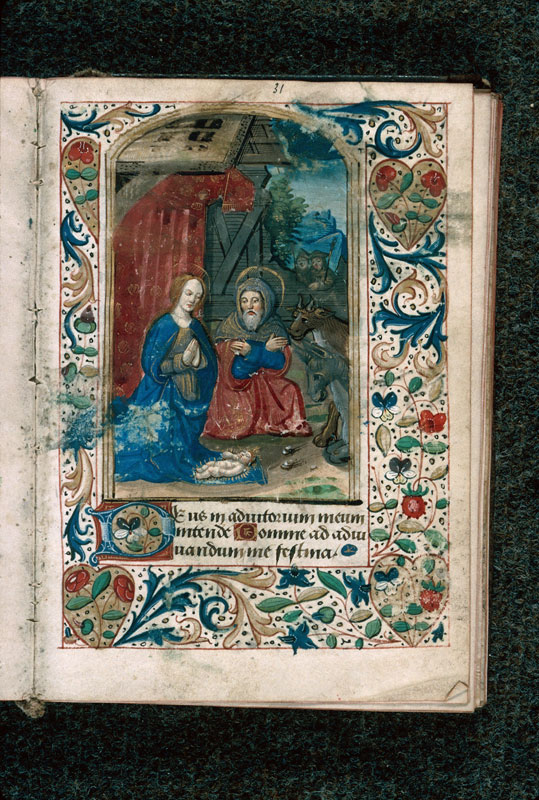 31
Deus in adiutorium meum
intende Domine ad adiu
uandum me festina.